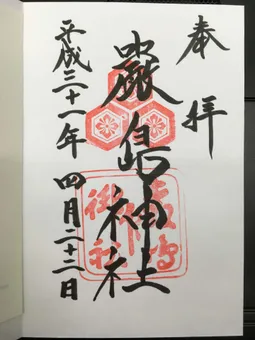 奉拝
嚴島神社
平成三十一年 四月二十二日